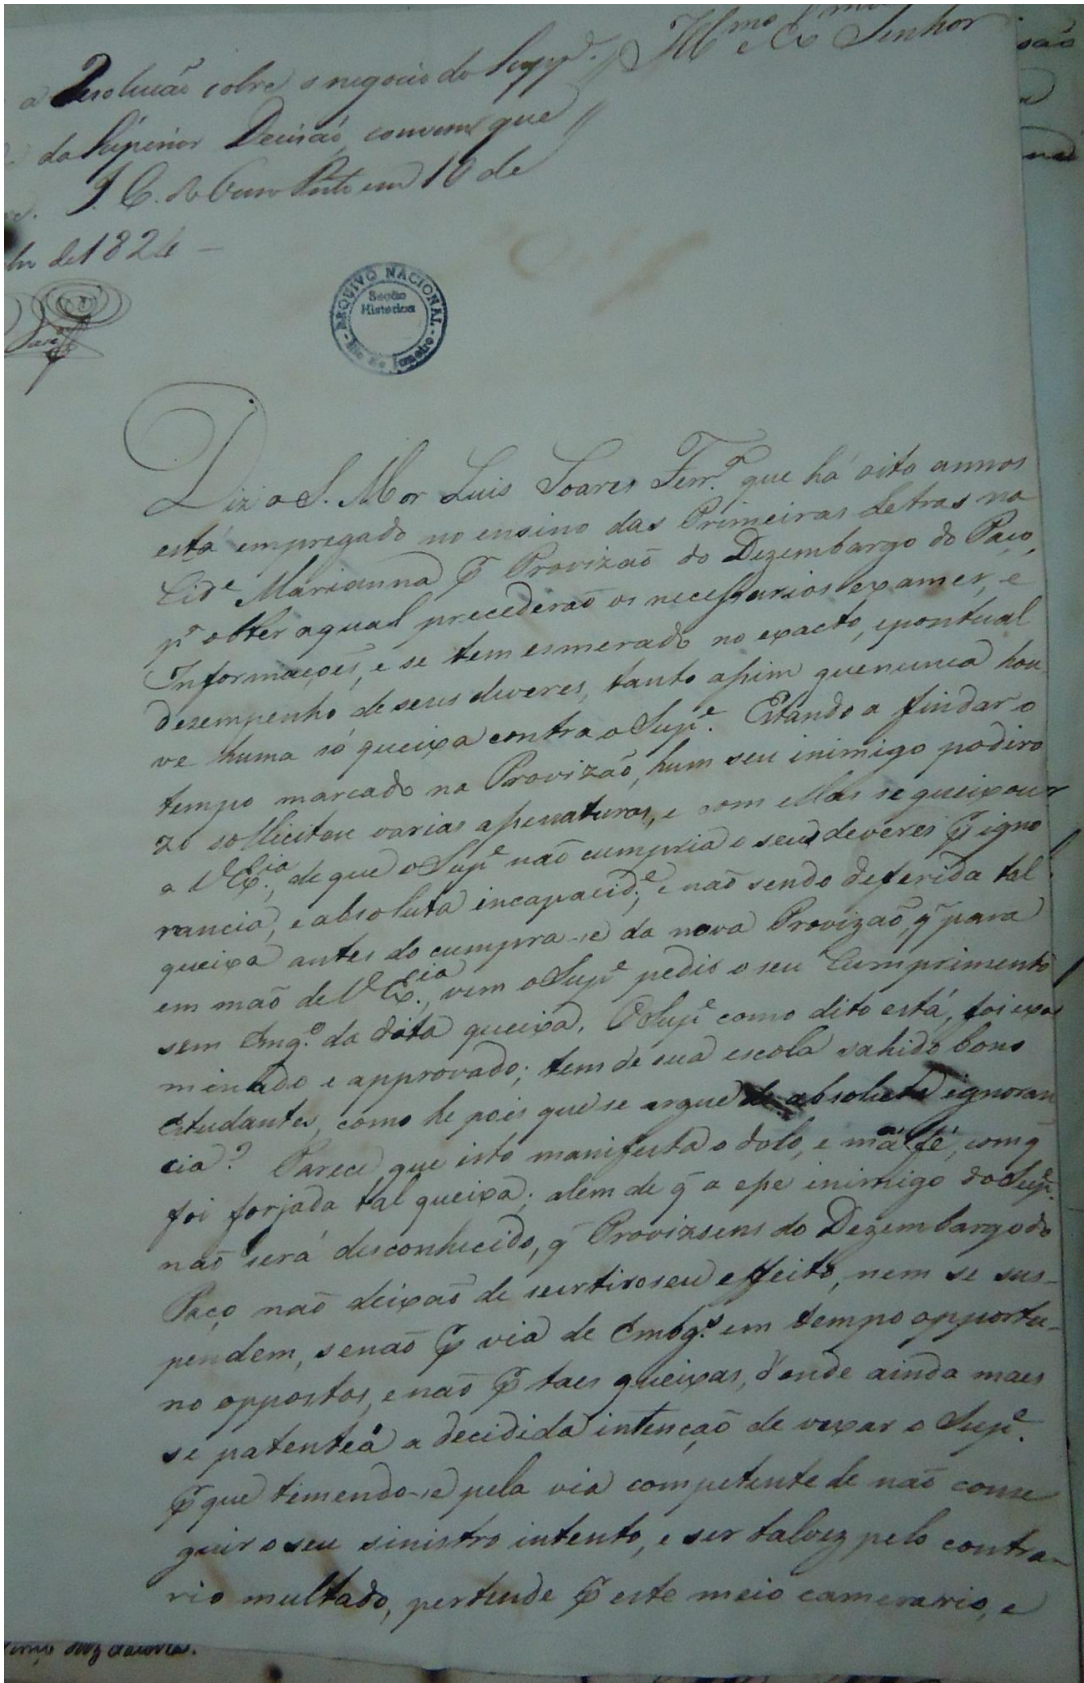 Illmo e Exmo Senhor
a Resolução sobre o negocio do Suppe.
da Superior Decisão, convem que
I. C. do Ouro Preto em 10 de
de 1824
ARQUIVO NACIONAL
Secão
Historica
Rio de Janeiro
Diz o S. Mor Luis Soares Ferra. que há oito annos
está empregado no ensino das Primeiras Letras na
Cide. Marianna p Provizaõ do Dezembargo do Paço,
pa. obter a qual precederaõ os necessarios exames, e
Informaçoẽs, e se tem esmerado no exacto, e pontual
dezempenho de seus deveres, tanto assim que nunca hou
ve huma só queixa contra o Supe. Estando a findar o
tempo marcado na Provizaõ, hum seu inimigo podero
zo sollicitou varias assenaturas, e com ellas se queixou
a V Excia, de que o Supe naõ cumpria o seus deveres p igno
rancia, e absoluta incapacide., e naõ sendo deferida tal
queixa antes do cumpra-se da nova Provizaõ, q para
em maõ de V Ex.cia, vem o Supe pedir o seu Cumprimento
sem Embgo. da dita queixa. O Supe como dito está, foi exa
minado e approvado; tem de sua escola sahido bons
Estudantes, como he pois que se argue de absoluta ignoran
cia? Parece que isto manifesta o dolo, e má fé, com q
foi forjada tal queixa; alem de q a esse inimigo do Supe.
naõ será desconhecido, q Provizoens do Dezembargo do
Paço, naõ deixaõ de surtir o seu effeito, nem se sus-
pendem, senaõ p via de Embgs. em tempo opportu-
no oppostos, e naõ p taes queixas, d'onde ainda mais
se patentêa a decidida intençaõ de vexar o Supe.
p que temendo-se pela via competente de naõ conse
guir o seu sinistro intento, e ser talvez pelo contra-
rio multado, pertende p este meio camerario, e